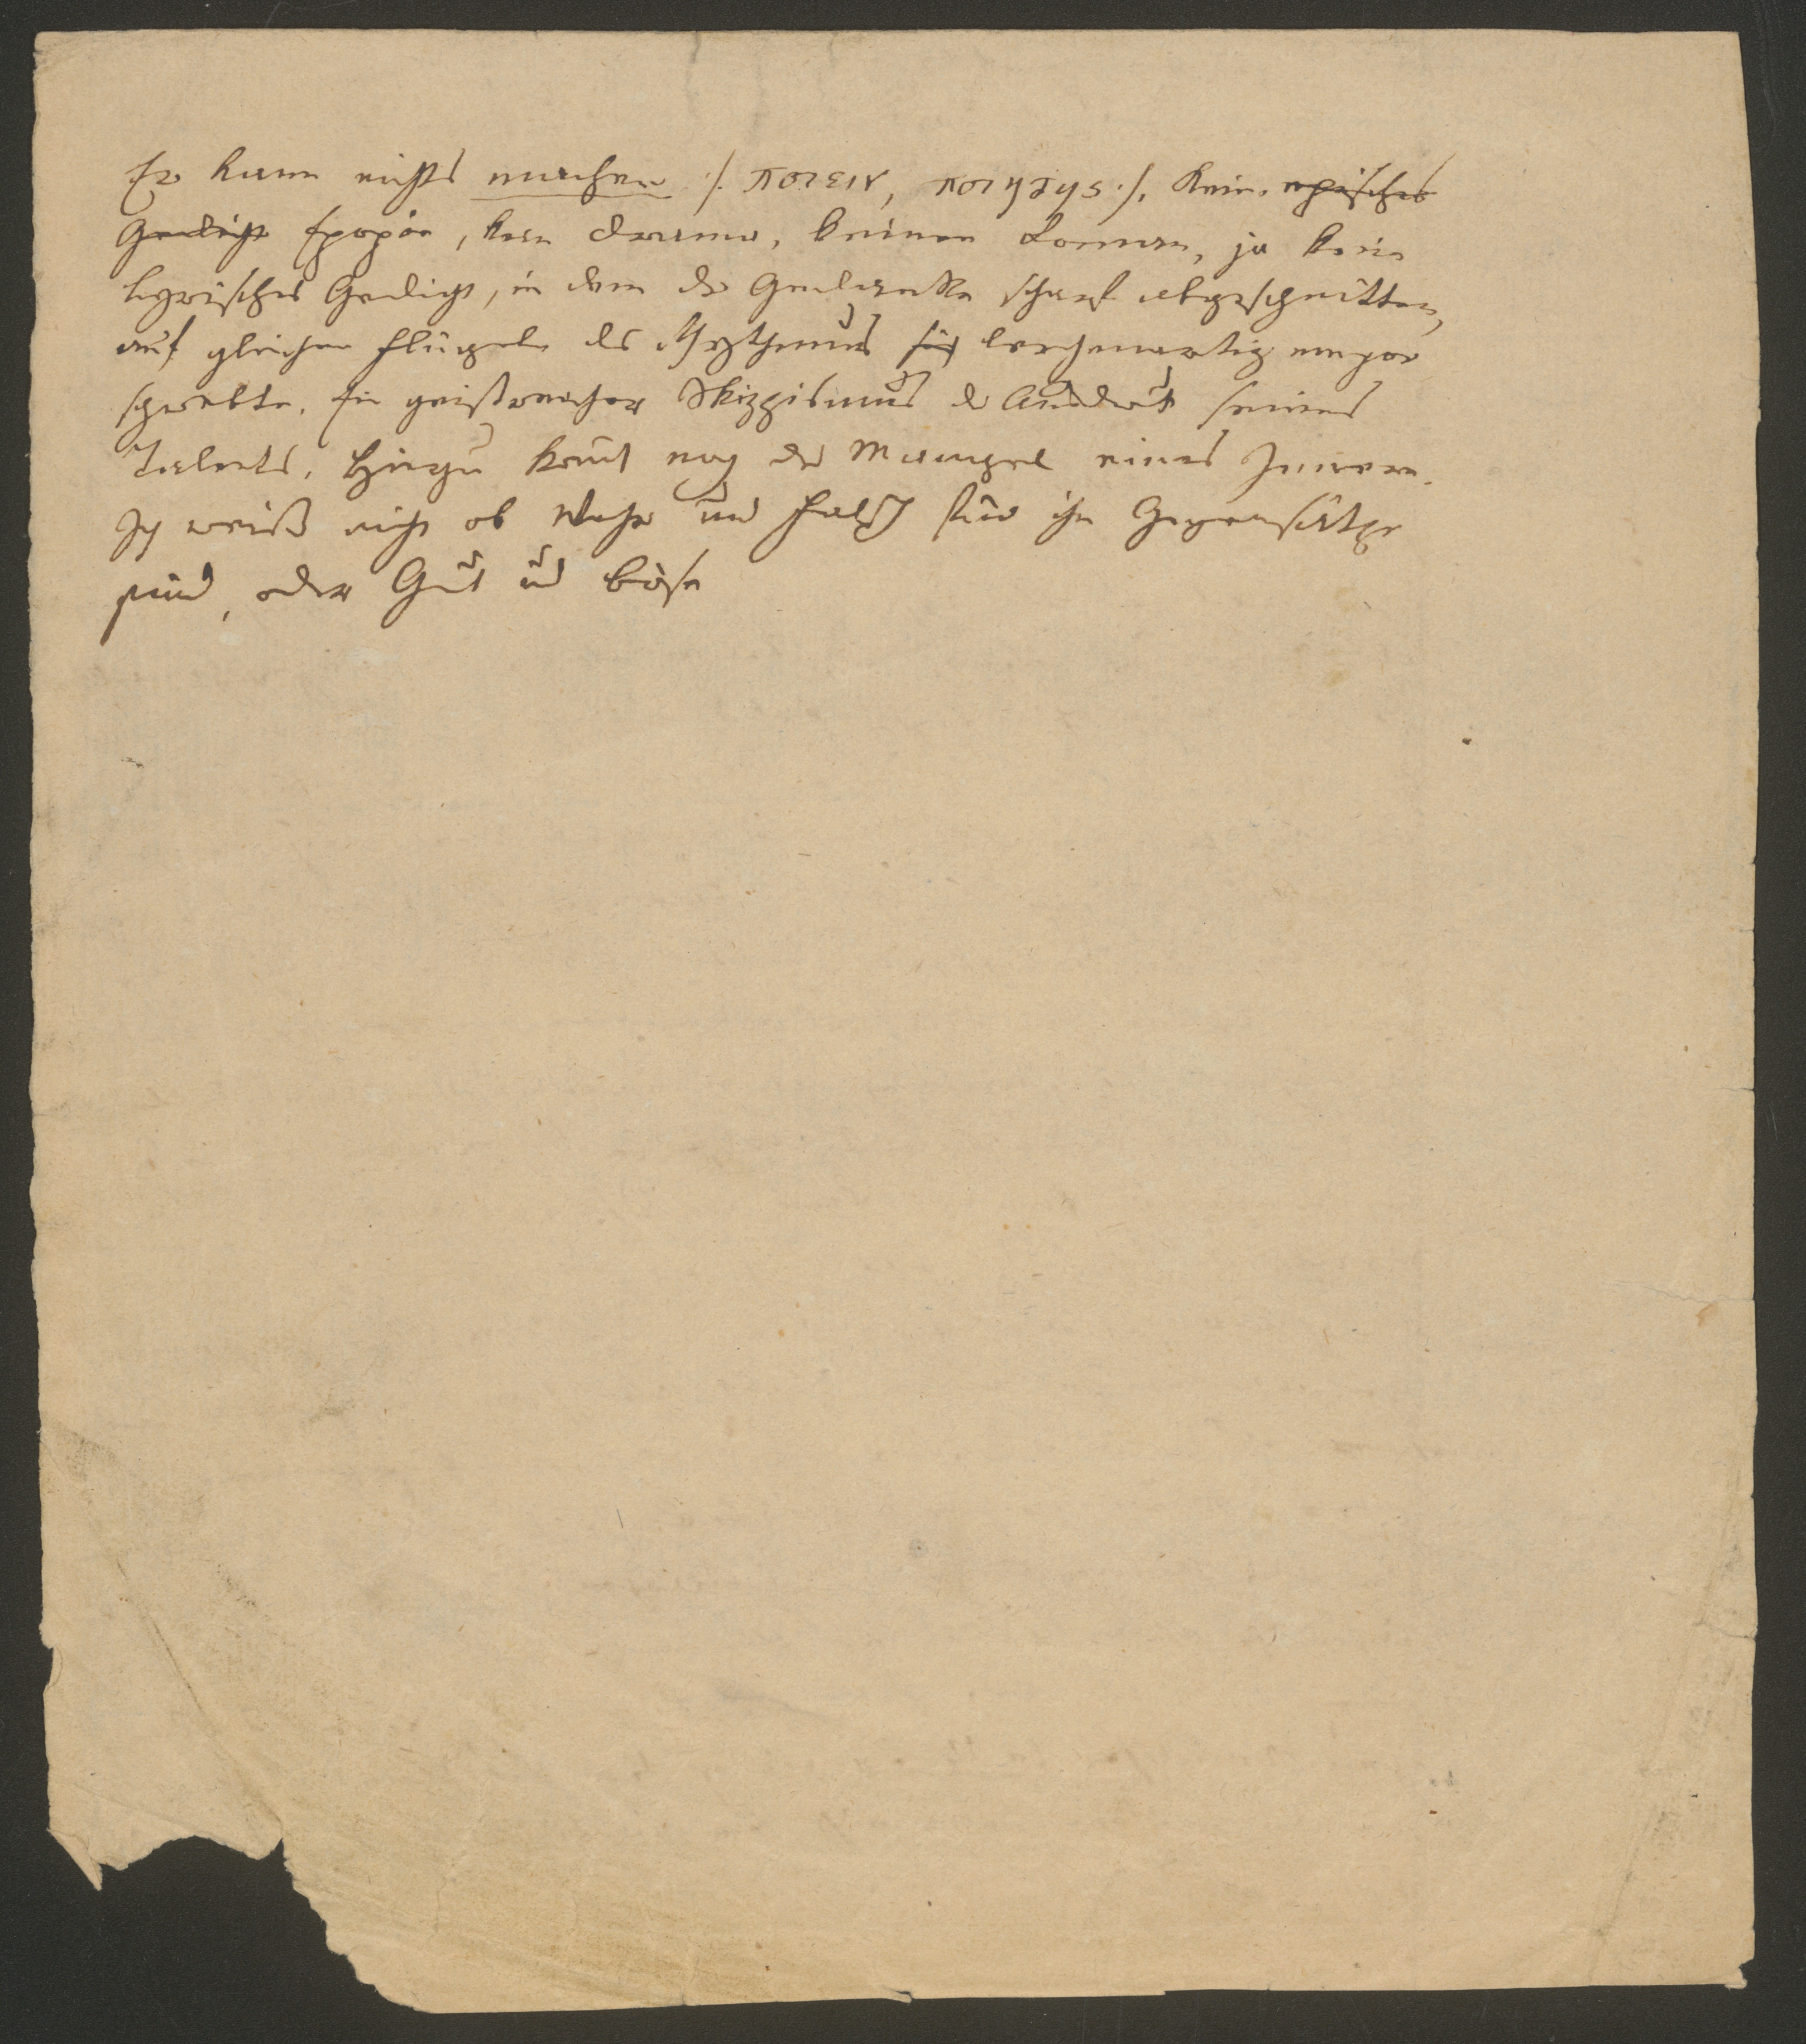 Er kann nichts machen /. ποιειν, ποιητης ./. Kein episches
Gedicht Epopöe, kein Drama, keinen Roman, ja kein
lyrisches Gedicht, in dem der Gedanke scharf abgeschnitten,
auf gleichen Flügeln des Rhythmus sich lerchenartig empor
schwebte. Ein geistreicher Skizzismus der Ausdruck seines
Talents. Hinzu komt noch der Mangel eines Innern.
Ich weiß nicht ob Wahr und Falsch für ihn Gegensätze
sind, oder Gut und böse